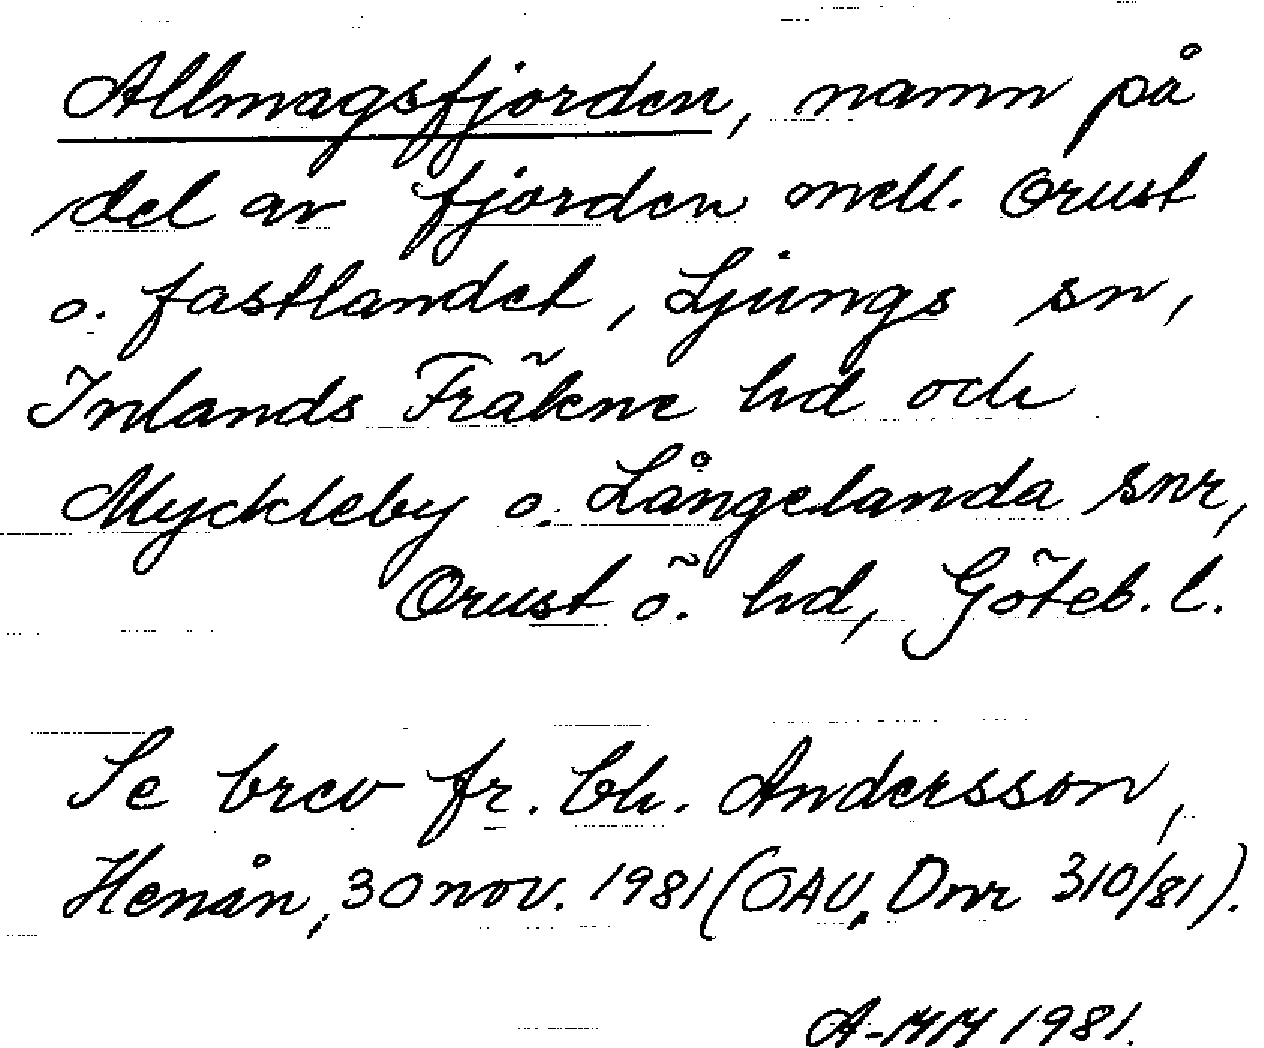 Allmagsfjorden, namn på
del av fjorden mell. Orust
o. fastlandet, Ljungs sn,
Inlands Fräkne hd och
Myckleby o. Långelanda snr,
Orust ö. hd, Göteb. l.
Se brev fr. Ch. Andersson,
Henån, 30 nov. 1981 (OAU, Dnr 310/81).
A-MM 1981.